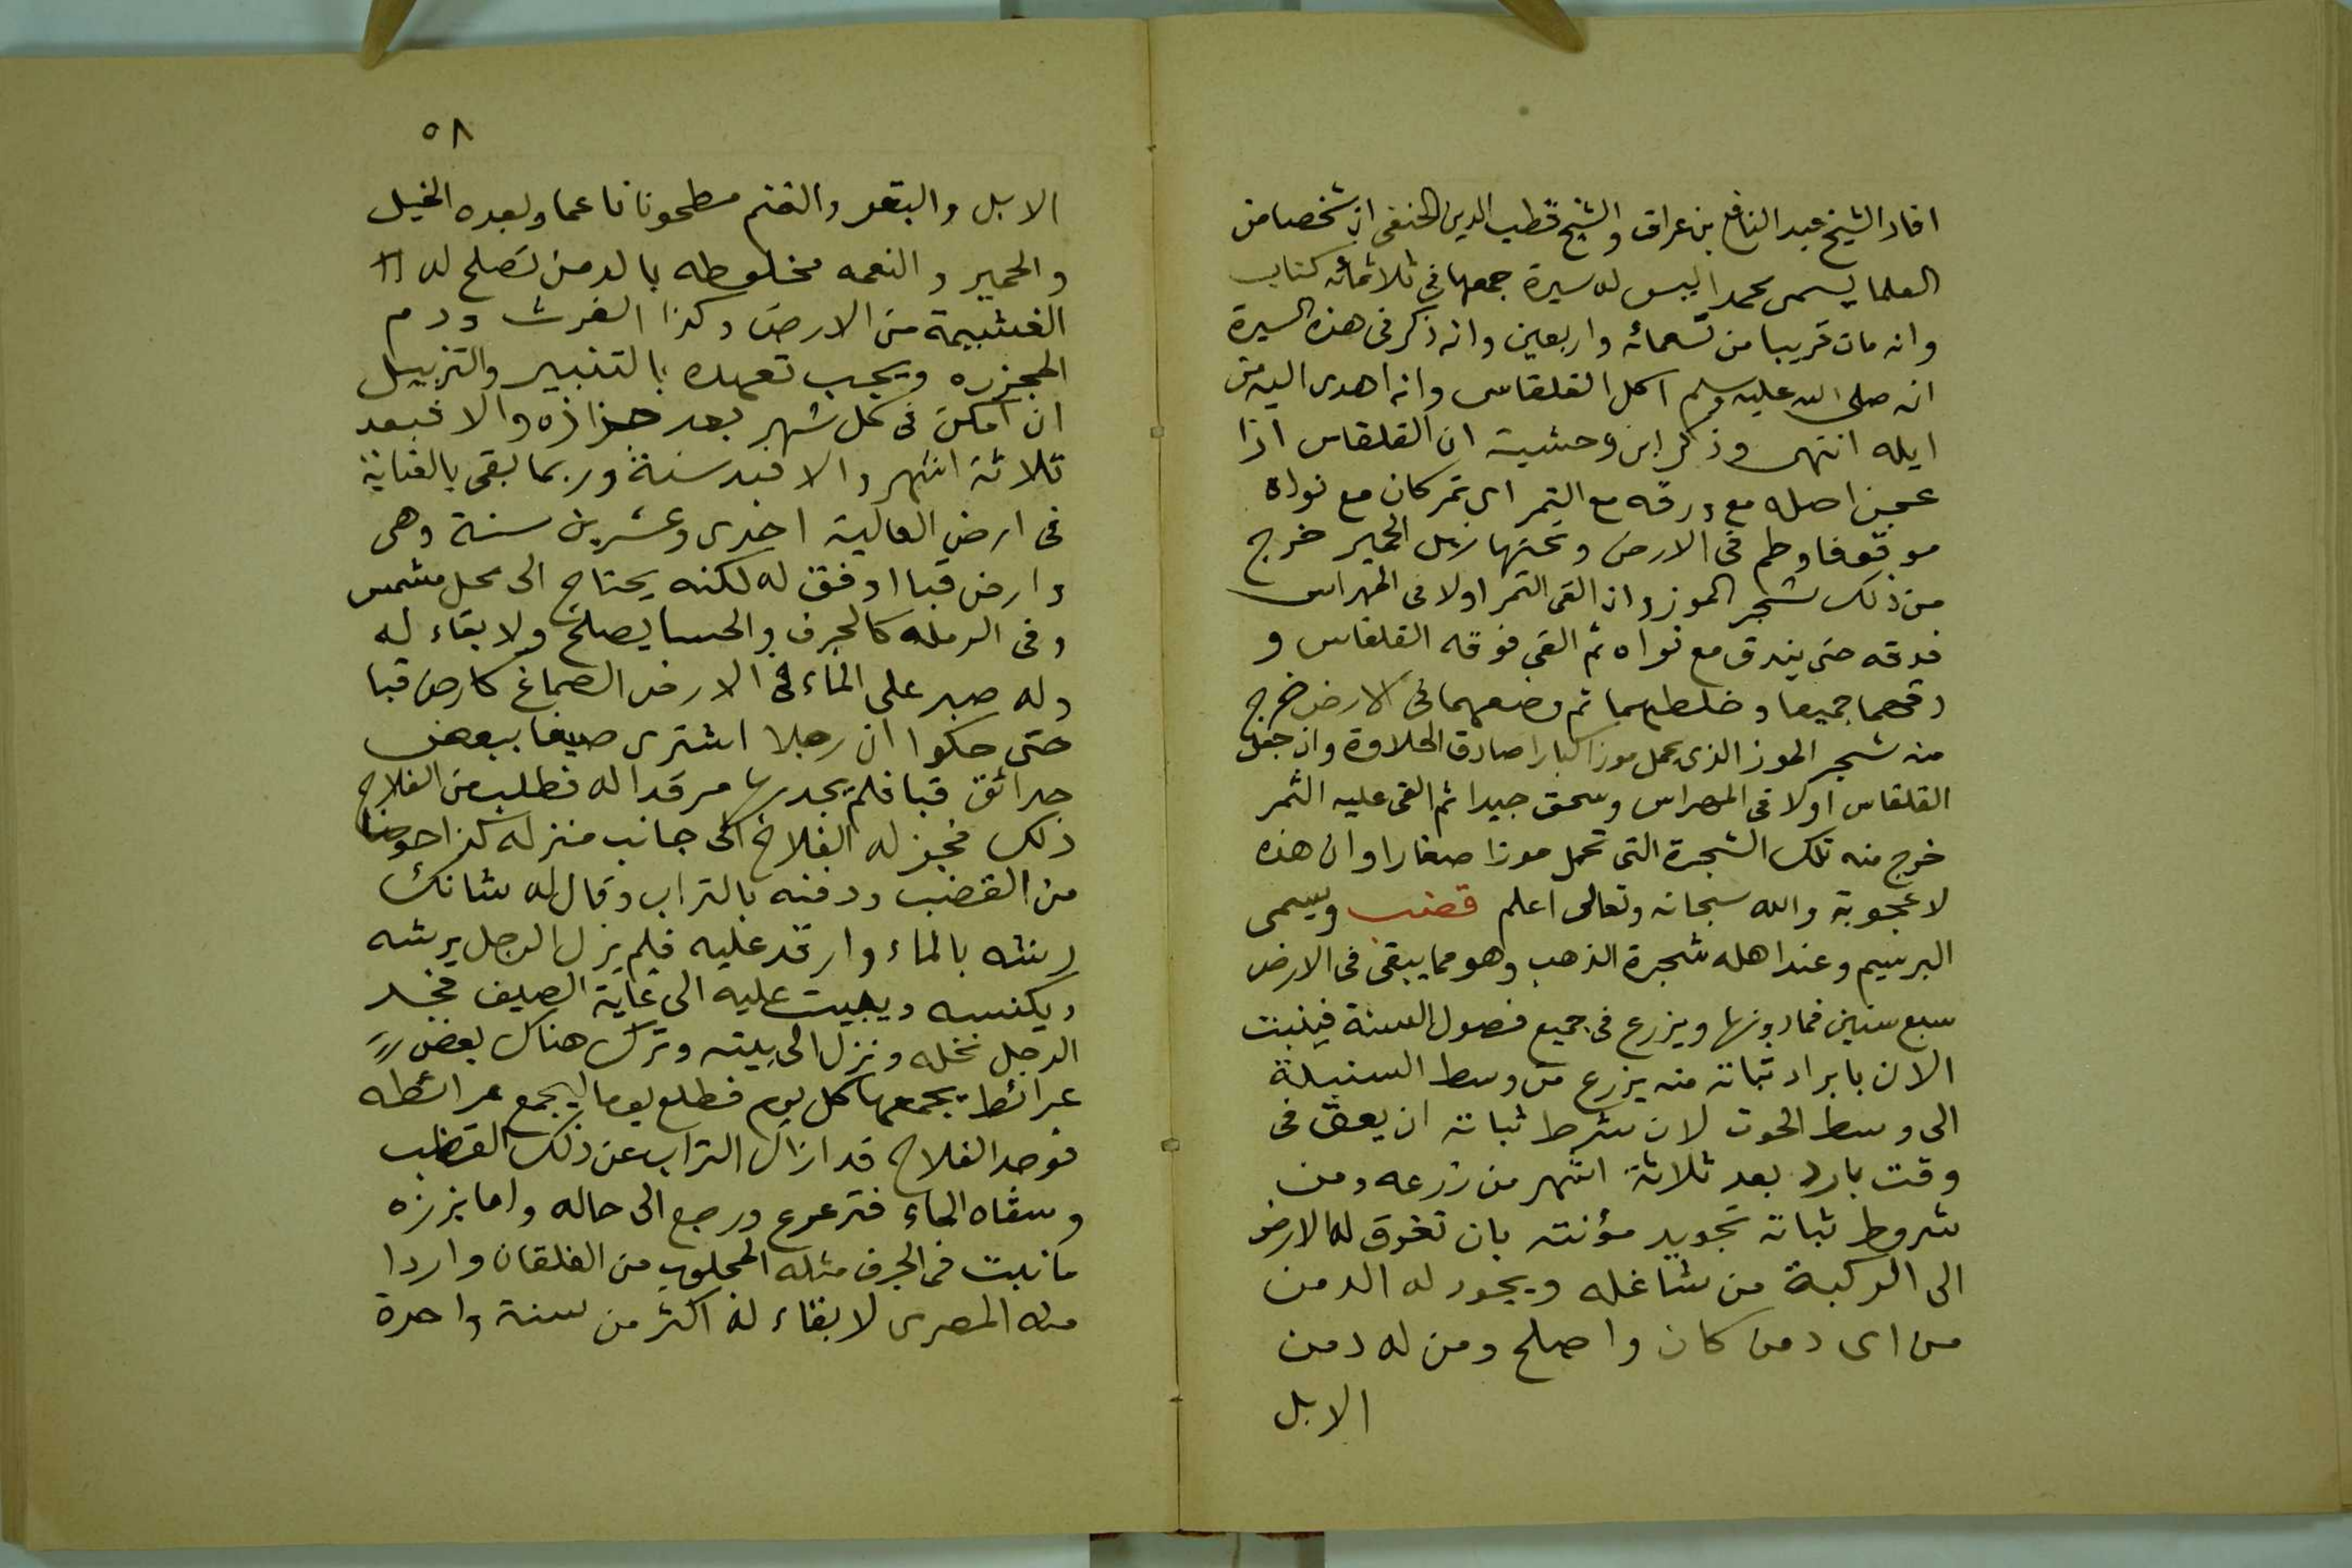 افاد الشيخ عبد النافع بن عراق والشيخ قطب الدين الحنفى ان شخصا من
العلما يسمى محمدا ليس له سيرة جمعها فى ثلاثمائه كتاب
وانه مات قريبا من تسعمائه واربعين وانه ذكر فى هذه السيرة
انه صلى الله عليه وسلم اكل القلقاس وانه اهدى اليه من
ايله انتهى وذكر ابن وحشية ان القلقاس اذا
عجن اصله مع ورقه مع التمر اى تمر كان مع نواه
موقوفا وطم فى الارض وتحتها زبل الحمير خرج
من ذلك شجر الموز وان القى التمر اولا فى المهراس
فدقه حتى يندق مع نواه ثم القى فوقه القلقاس و
دقهما جميعا وخلطهما ثم وضعهما فى الارض خرج
منه شجر الموز الذى يحمل موزا كبارا صادق الحلاوة وان جعل
القلقاس اولا فى المهراس وسحق جيدا ثم القى عليه الثمر
خرج منه تلك الشجرة التى تحمل موزا صغارا وان هذه
لاعجوبة والله سبحانه وتعالى اعلم قضب ويسمى
البرسيم وعند اهله شجرة الذهب وهو مما يبقى فى الارض
سبع سنين فمادونها ويزرع فى جميع فصول السنة فينبت
الان بابراد ثباته منه يزرع من وسط السنبلة
الى وسط الحوت لان شرط ثباته ان يعق فى
وقت بارد بعد ثلاثة اشهر من زرعه ومن
شروط ثباته تجويد مؤنته بان تغرق له الارض
الى الركبة من شاغله ويجود له الدمن
من اى دمن كان واصلح ومن له دمن
الابل
٥٨
الابل والبقر والغنم مطحونا ناعما وبعده الخيل
والحمير و النعمه مخلوطه بالدمن تصلح له
الغشيمة من الارض وكذا الفرث ودم
المجزره ويجب تعهده بالتنبير والتزبيل
ان امكن فى كل شهر بعد جزازه والا فبعد
ثلاثة اشهر والا فبعد سنة وربما بقى بالعناية
فى ارض العالية احدى وعشرين سنة وهى
وارض قبا اوفق له لكنه يحتاج الى محل مشمس
وفى الرمله كالجرف والحسا يصلح ولا بقاء له
وله صبر على الماء فى الارض الصماغ كارض قبا
حتى حكوا ان رجلا اشترى صيفا ببعض
حدائق قبا فلم يجد بها مرقدا له فطلب من الفلاح
ذلك فجز له الفلاح الى جانب منزله كذا حوضا
من القضب ودفنه بالتراب وقال له شانك
رشه بالماء وارقد عليه فلم يزل الرجل يرشه
ويكنسه ويبيت عليه الى غاية الصيف فجد
الرجل نخله ونزل الى بيته وترك هناك بعض
عرائط يجمعها كل يوم فطلع يوما ليجمع عرائطه
فوجد الفلاح قد ازال التراب عن ذلك القضب
وسقاه الماء فترعرع ورجع الى حاله واما بزره
ما نبت فى الجرف مثله المجلوب من الفلقان واردا
منه المصرى لا بقاء له اكثر من سنة واحدة